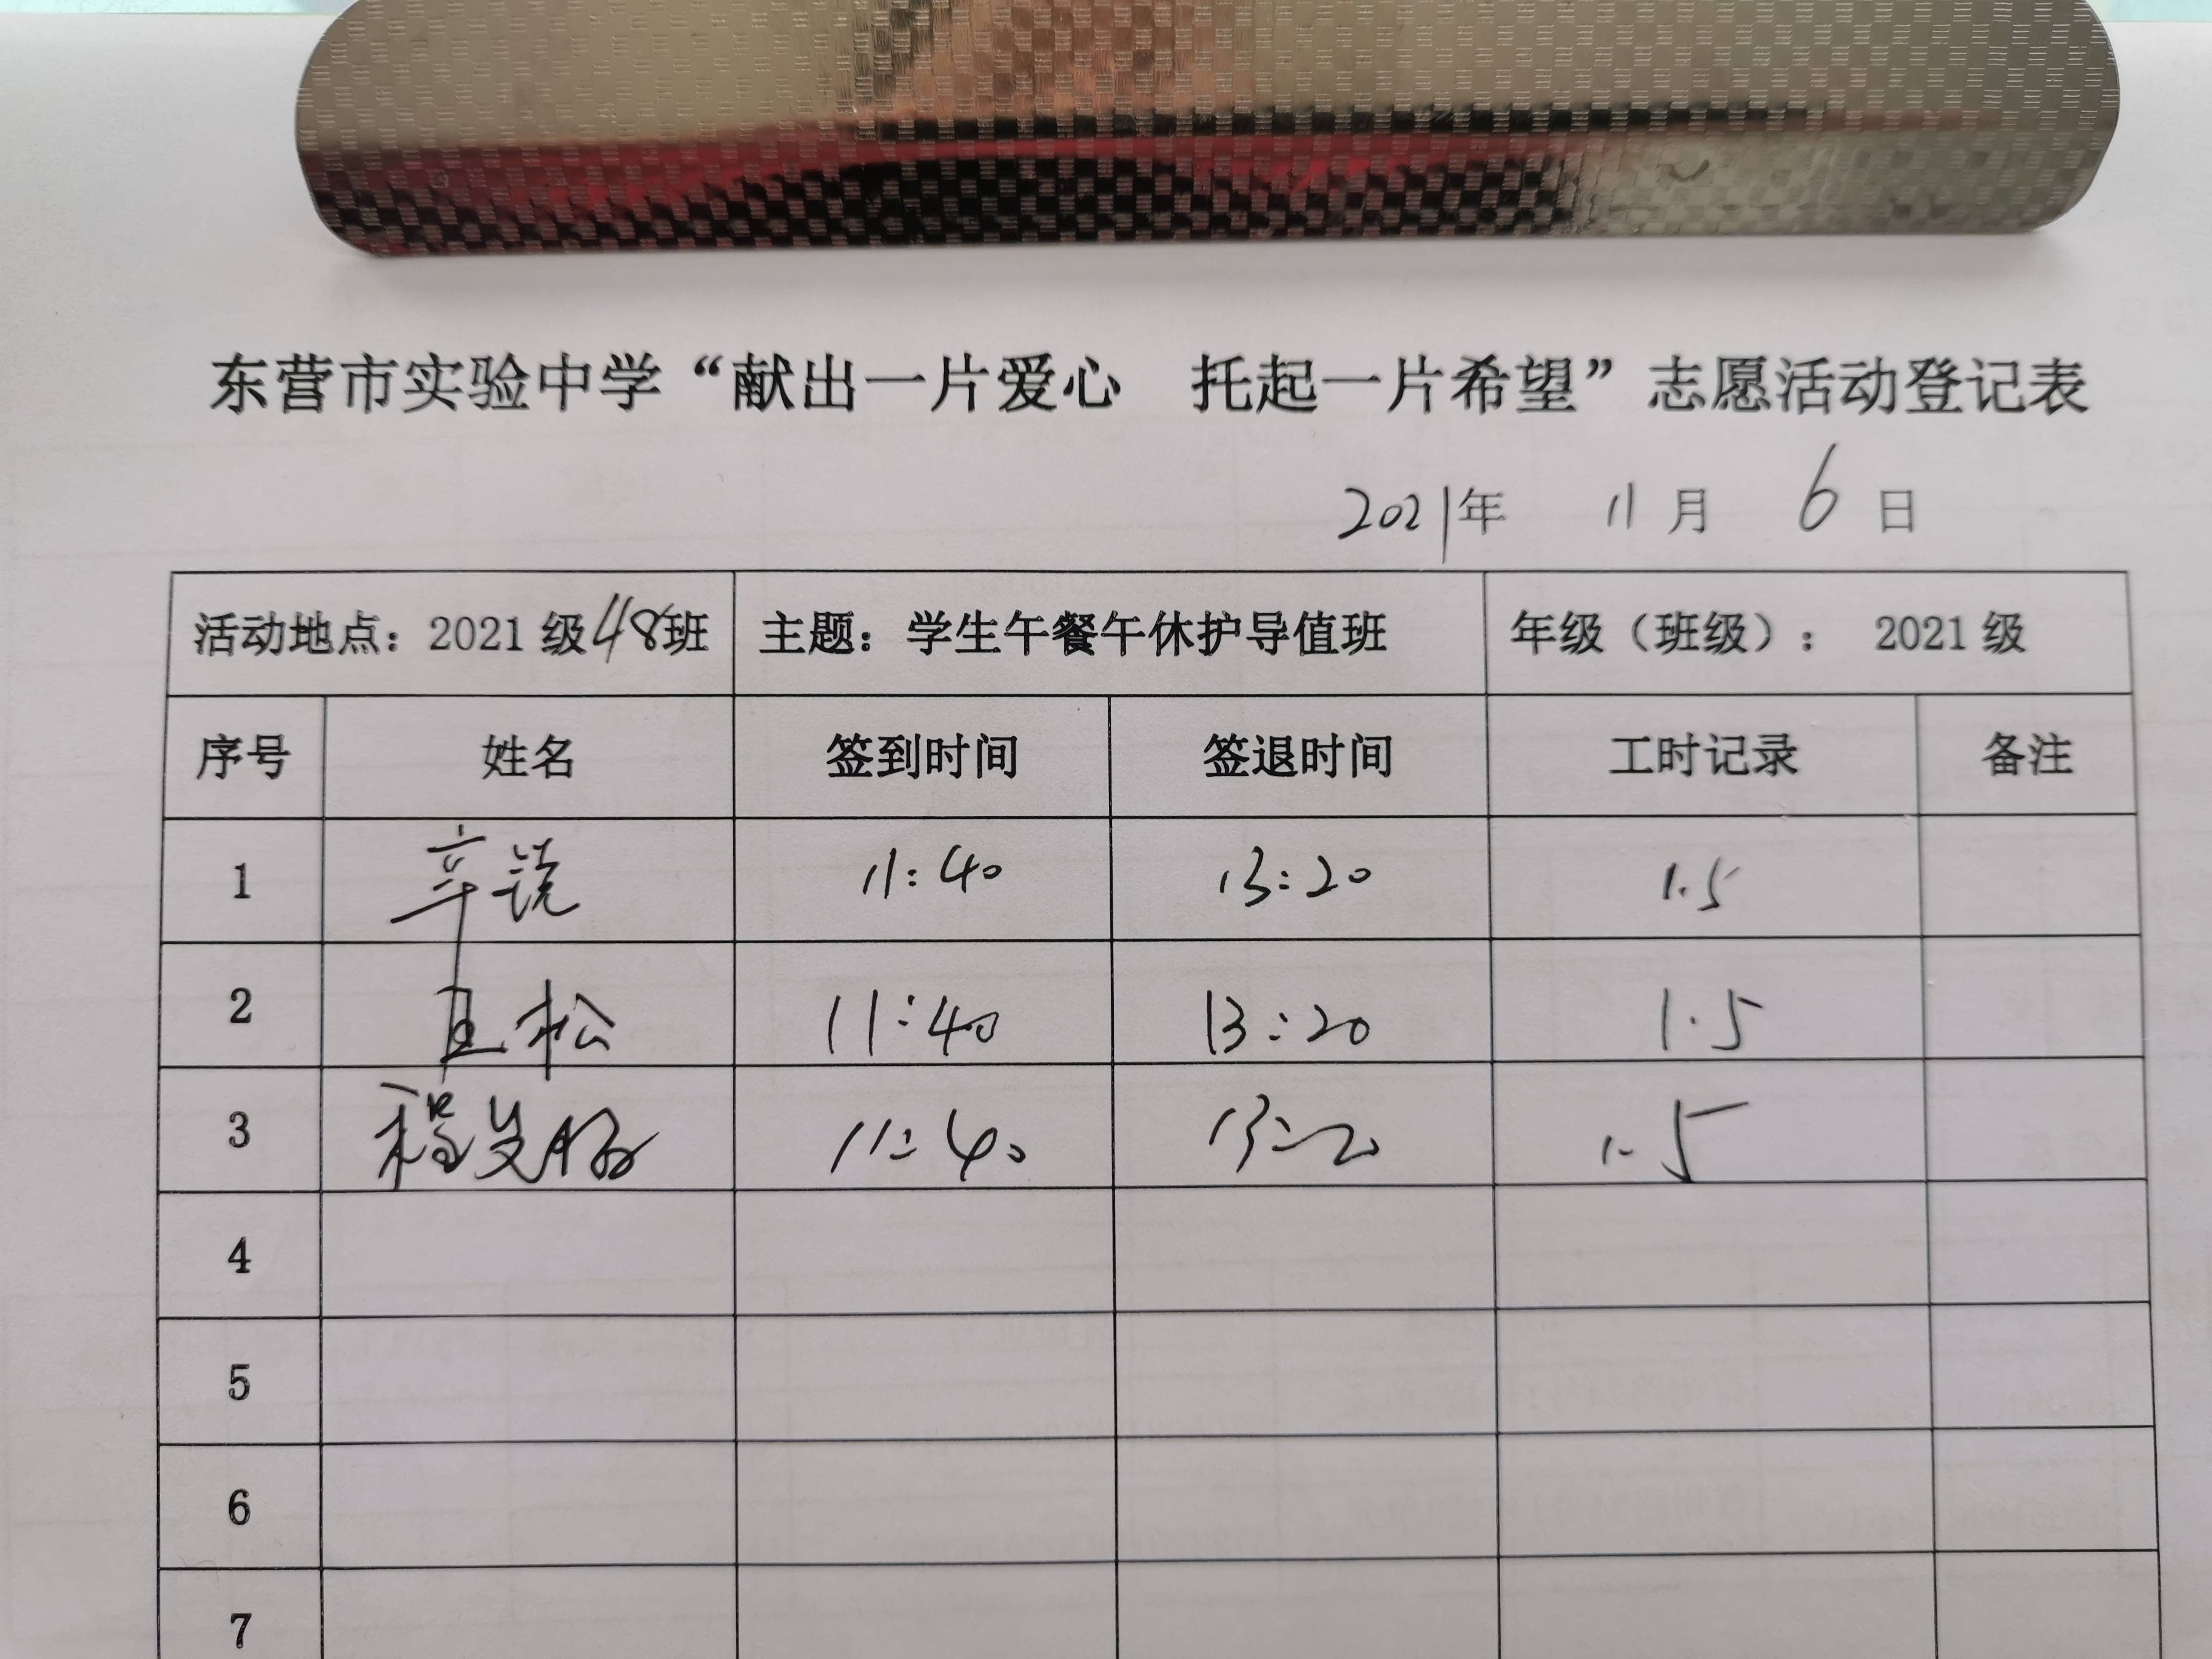 东营市实验中学“献出一片爱心 托起一片希望”志愿活动登记表
2021年 11月 6日
活动地点：2021级48班 主题：学生午餐午休护导值班 年级（班级）： 2021级
序号 姓名 签到时间 签退时间 工时记录 备注
1 辛锐 11:40 13:20 1.5
2 松 11:40 13:20 1.5
3 程 11:40 13:20 1.5
4
5
6
7